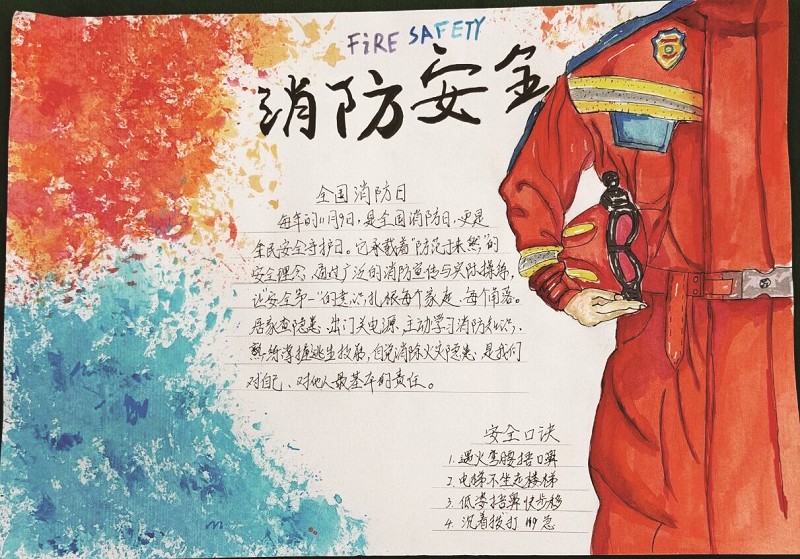 FiRE SAFETY
消防安全
全国消防日
每年的11月9日，是全国消防日，更是
全民安全守护日。它承载着“防范于未然”的
安全理念，通过广泛的消防宣传与实际操练，
让安全第一”的意识扎根每个家庭、每个角落。
居家查隐患、出门关电源，主动学习消防知识，
熟练掌握逃生技能，自觉消除火灾隐患，是我们
对自己、对他人最基本的责任。
安全口诀
1. 遇火弯腰捂口鼻
2. 电梯不坐走楼梯
3. 低姿捂鼻快步移
4. 沉着拨打119急